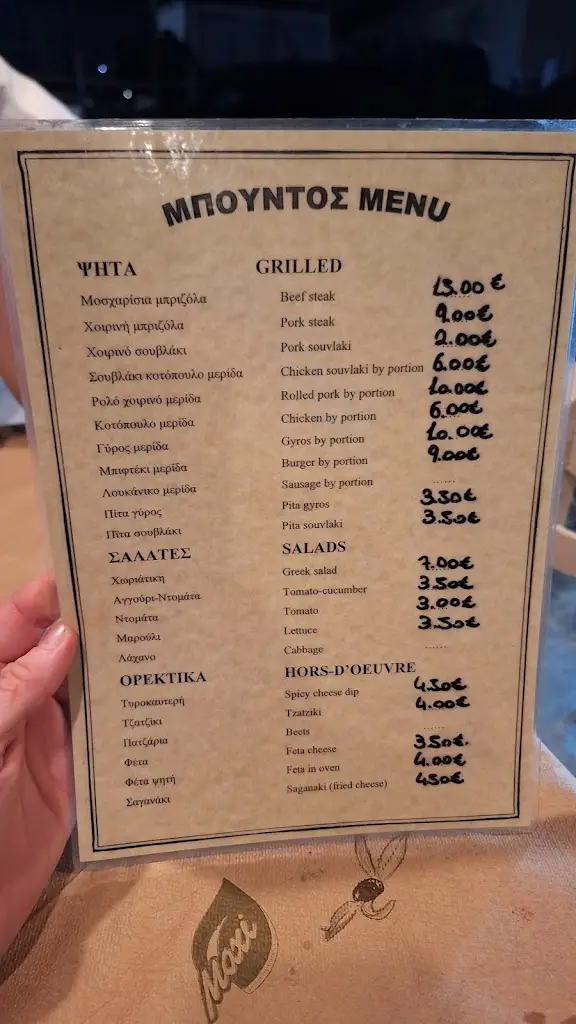 ΜΠΟΥΝΤΟΣ MENU
ΨΗΤΑ GRILLED
Μοσχαρίσια μπριζόλα Beef steak
Χοιρινή μπριζόλα Pork steak 9.00€
Χοιρινό σουβλάκι Pork souvlaki 2.00€
Σουβλάκι κοτόπουλο μερίδα Chicken souvlaki by portion 6.00€
Ρολό χοιρινό μερίδα Rolled pork by portion 10.00€
Κοτόπουλο μερίδα Chicken by portion 6.00€
Γύρος μερίδα Gyros by portion 10.00€
Μπιφτέκι μερίδα Burger by portion 9.00€
Λουκάνικο μερίδα Sausage by portion ......
Πίτα γύρος Pita gyros 3.50€
Πίτα σουβλάκι Pita souvlaki 3.50€
ΣΑΛΑΤΕΣ SALADS
Χωριάτικη Greek salad 7.00€
Αγγούρι-Ντομάτα Tomato-cucumber 3.50€
Ντομάτα Tomato 3.00€
Μαρούλι Lettuce 3.50€
Λάχανο Cabbage ......
ΟΡΕΚΤΙΚΑ HORS-D'OEUVRE
Τυροκαυτερή Spicy cheese dip 4.50€
Τζατζίκι Tzatziki 4.00€
Πατζάρια Beets ......
Φέτα Feta cheese 3.50€.
Φέτα ψητή Feta in oven 4.00€
Σαγανάκι Saganaki (fried cheese) 4.50€
Moxi